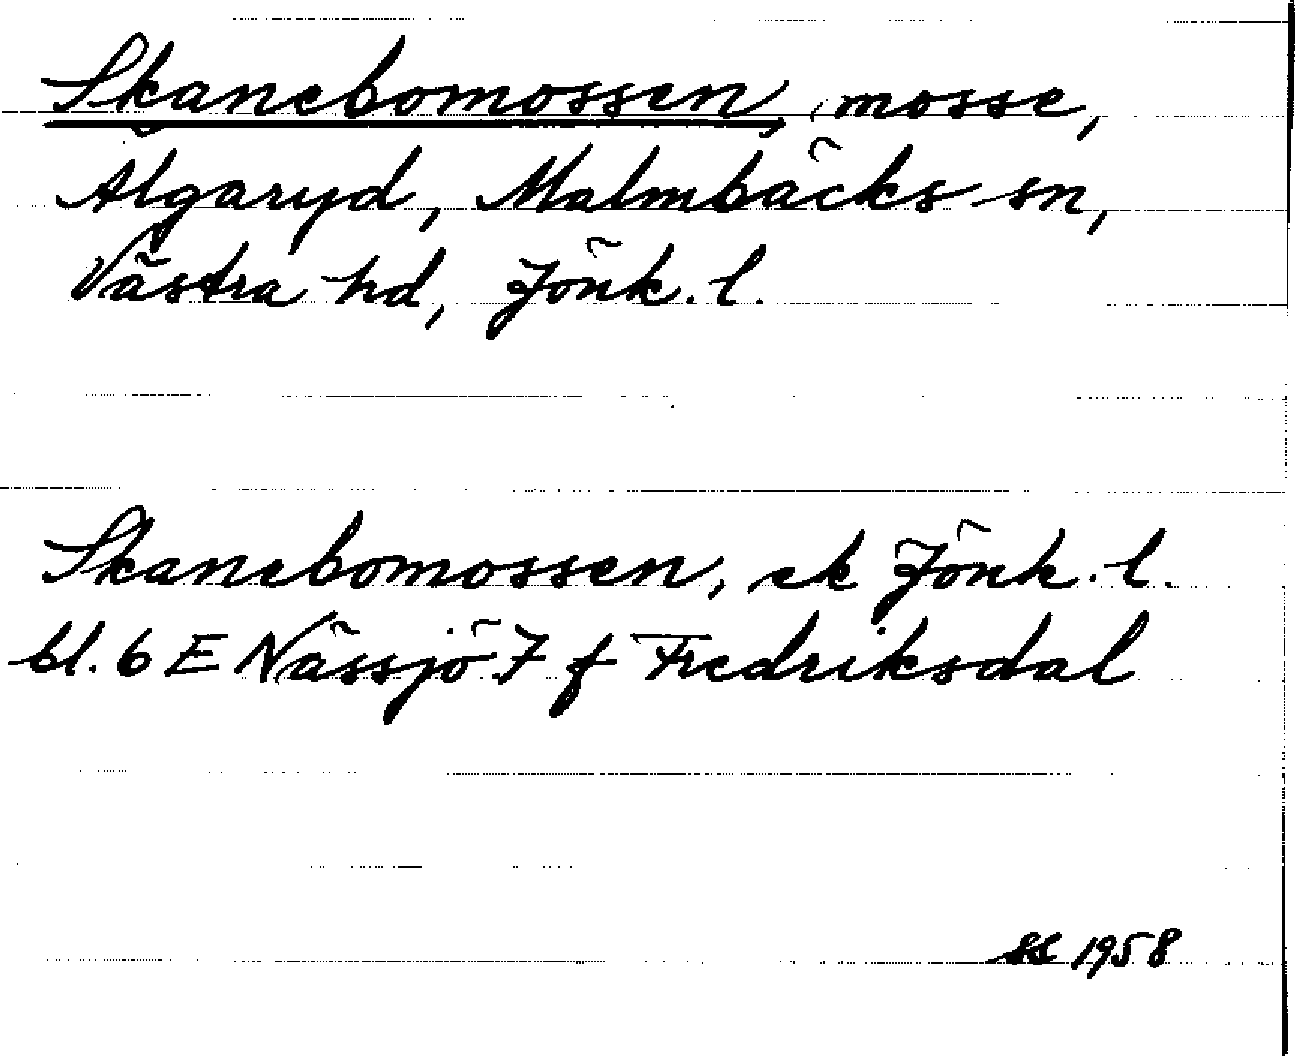 Skanebomossen, mosse,
Älgaryd, Malmbäcks sn,
Västra hd, Jönk. l.
Skanebomossen, ek Jönk. l.
bl. 6 E Nässjö 7 f Fredriksdal
1958